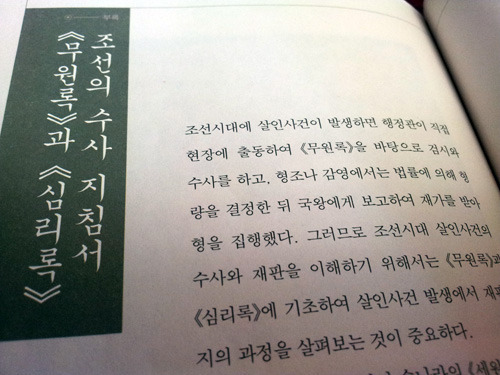 조선의 수사 지침서
《무원록》과 《심리록》
조선시대에 살인사건이 발생하면 행정관이 직접
현장에 출동하여 《무원록》을 바탕으로 검시와
수사를 하고, 형조나 감영에서는 법률에 의해 형
량을 결정한 뒤 국왕에게 보고하여 재가를 받아
형을 집행했다. 그러므로 조선시대 살인사건의
수사와 재판을 이해하기 위해서는 《무원록》과
《심리록》에 기초하여 살인사건 발생에서
지의 과정을 살펴보는 것이 중요하다.